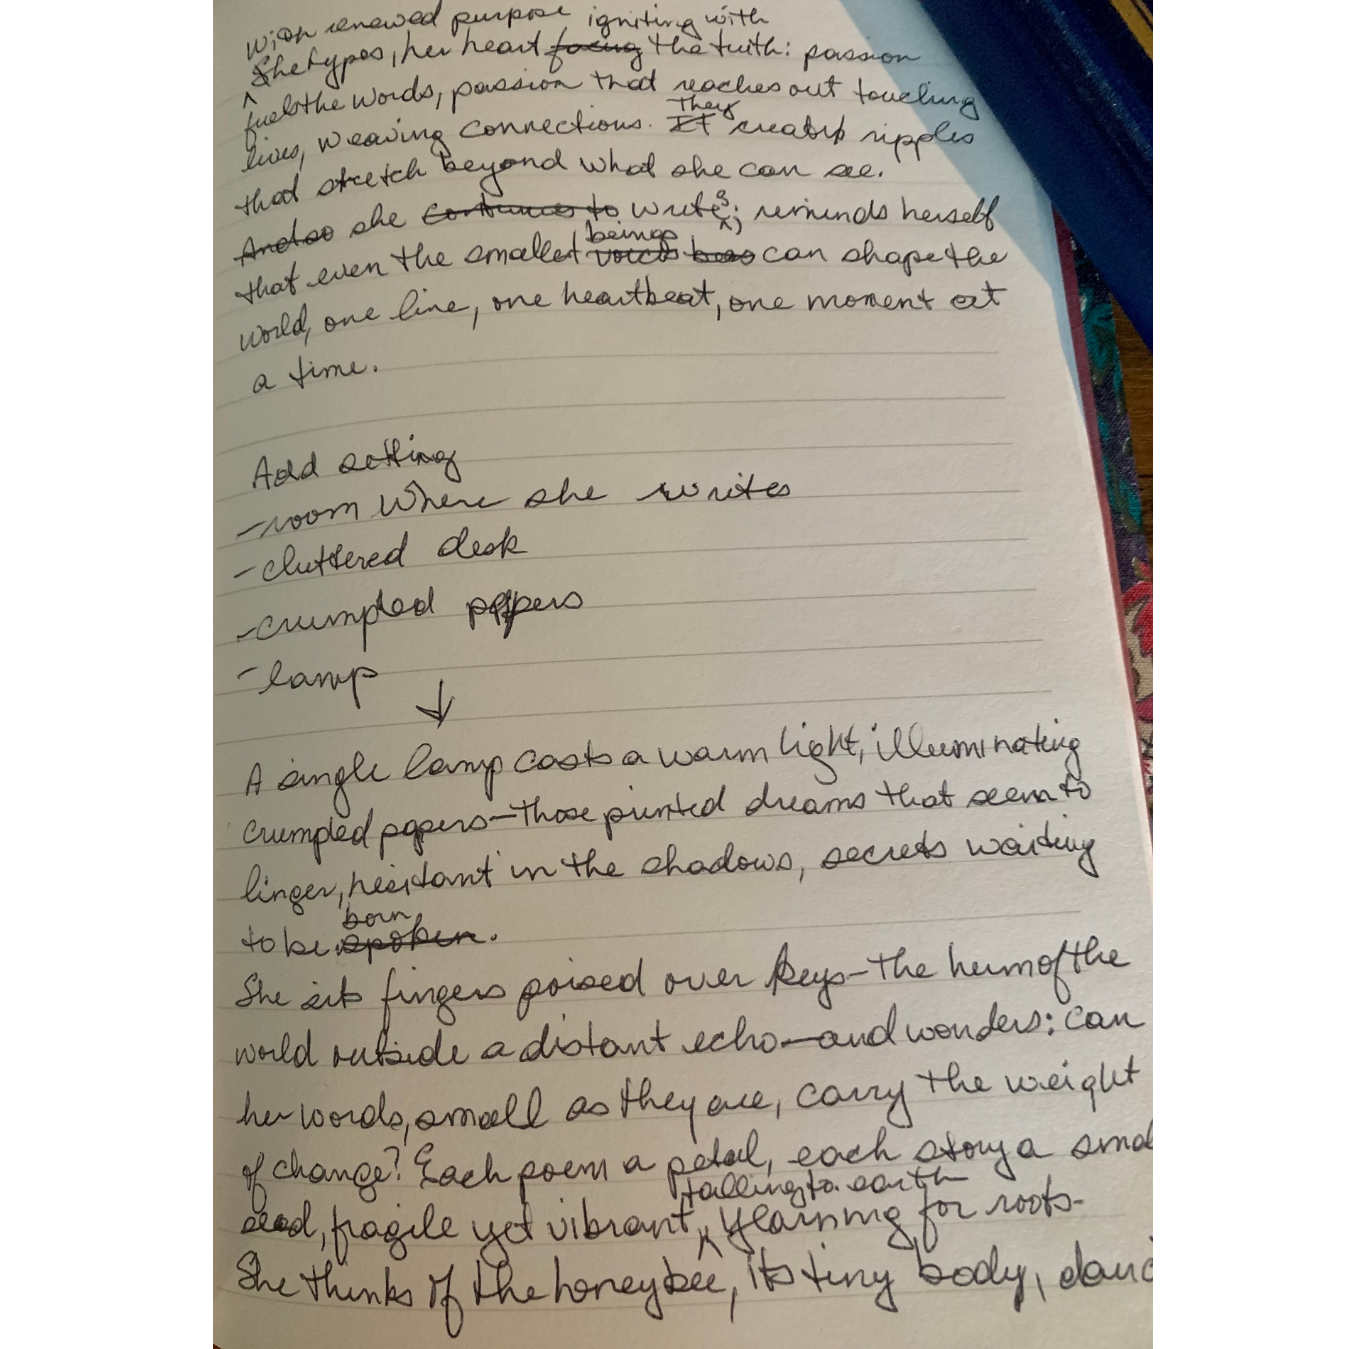 With renewed purpose igniting with
She types, her heart facing the truth: passion
fuels the words, passion that reaches out touching
They
lives, weaving connections. It creates ripples
that stretch beyond what she can see.
And so she continues to writes; reminds herself
beings
that even the smallest voices can shape the
world, one line, one heartbeat, one moment at
a time.
Add setting
-room where she writes
-cluttered desk
-crumpled papers
-lamp
↓
A single lamp casts a warm light, illuminating
crumpled papers—those printed dreams that seem to
linger, hesitant in the shadows, secrets waiting
born
to be spoken.
She sits fingers poised over keys—the hum of the
world outside a distant echo—and wonders: can
her words, small as they are, carry the weight
of change? Each poem a petal, each story a smal
falling to earth
seed, fragile yet vibrant, yearning for roots-
She thinks of the honeybee, its tiny body, danc